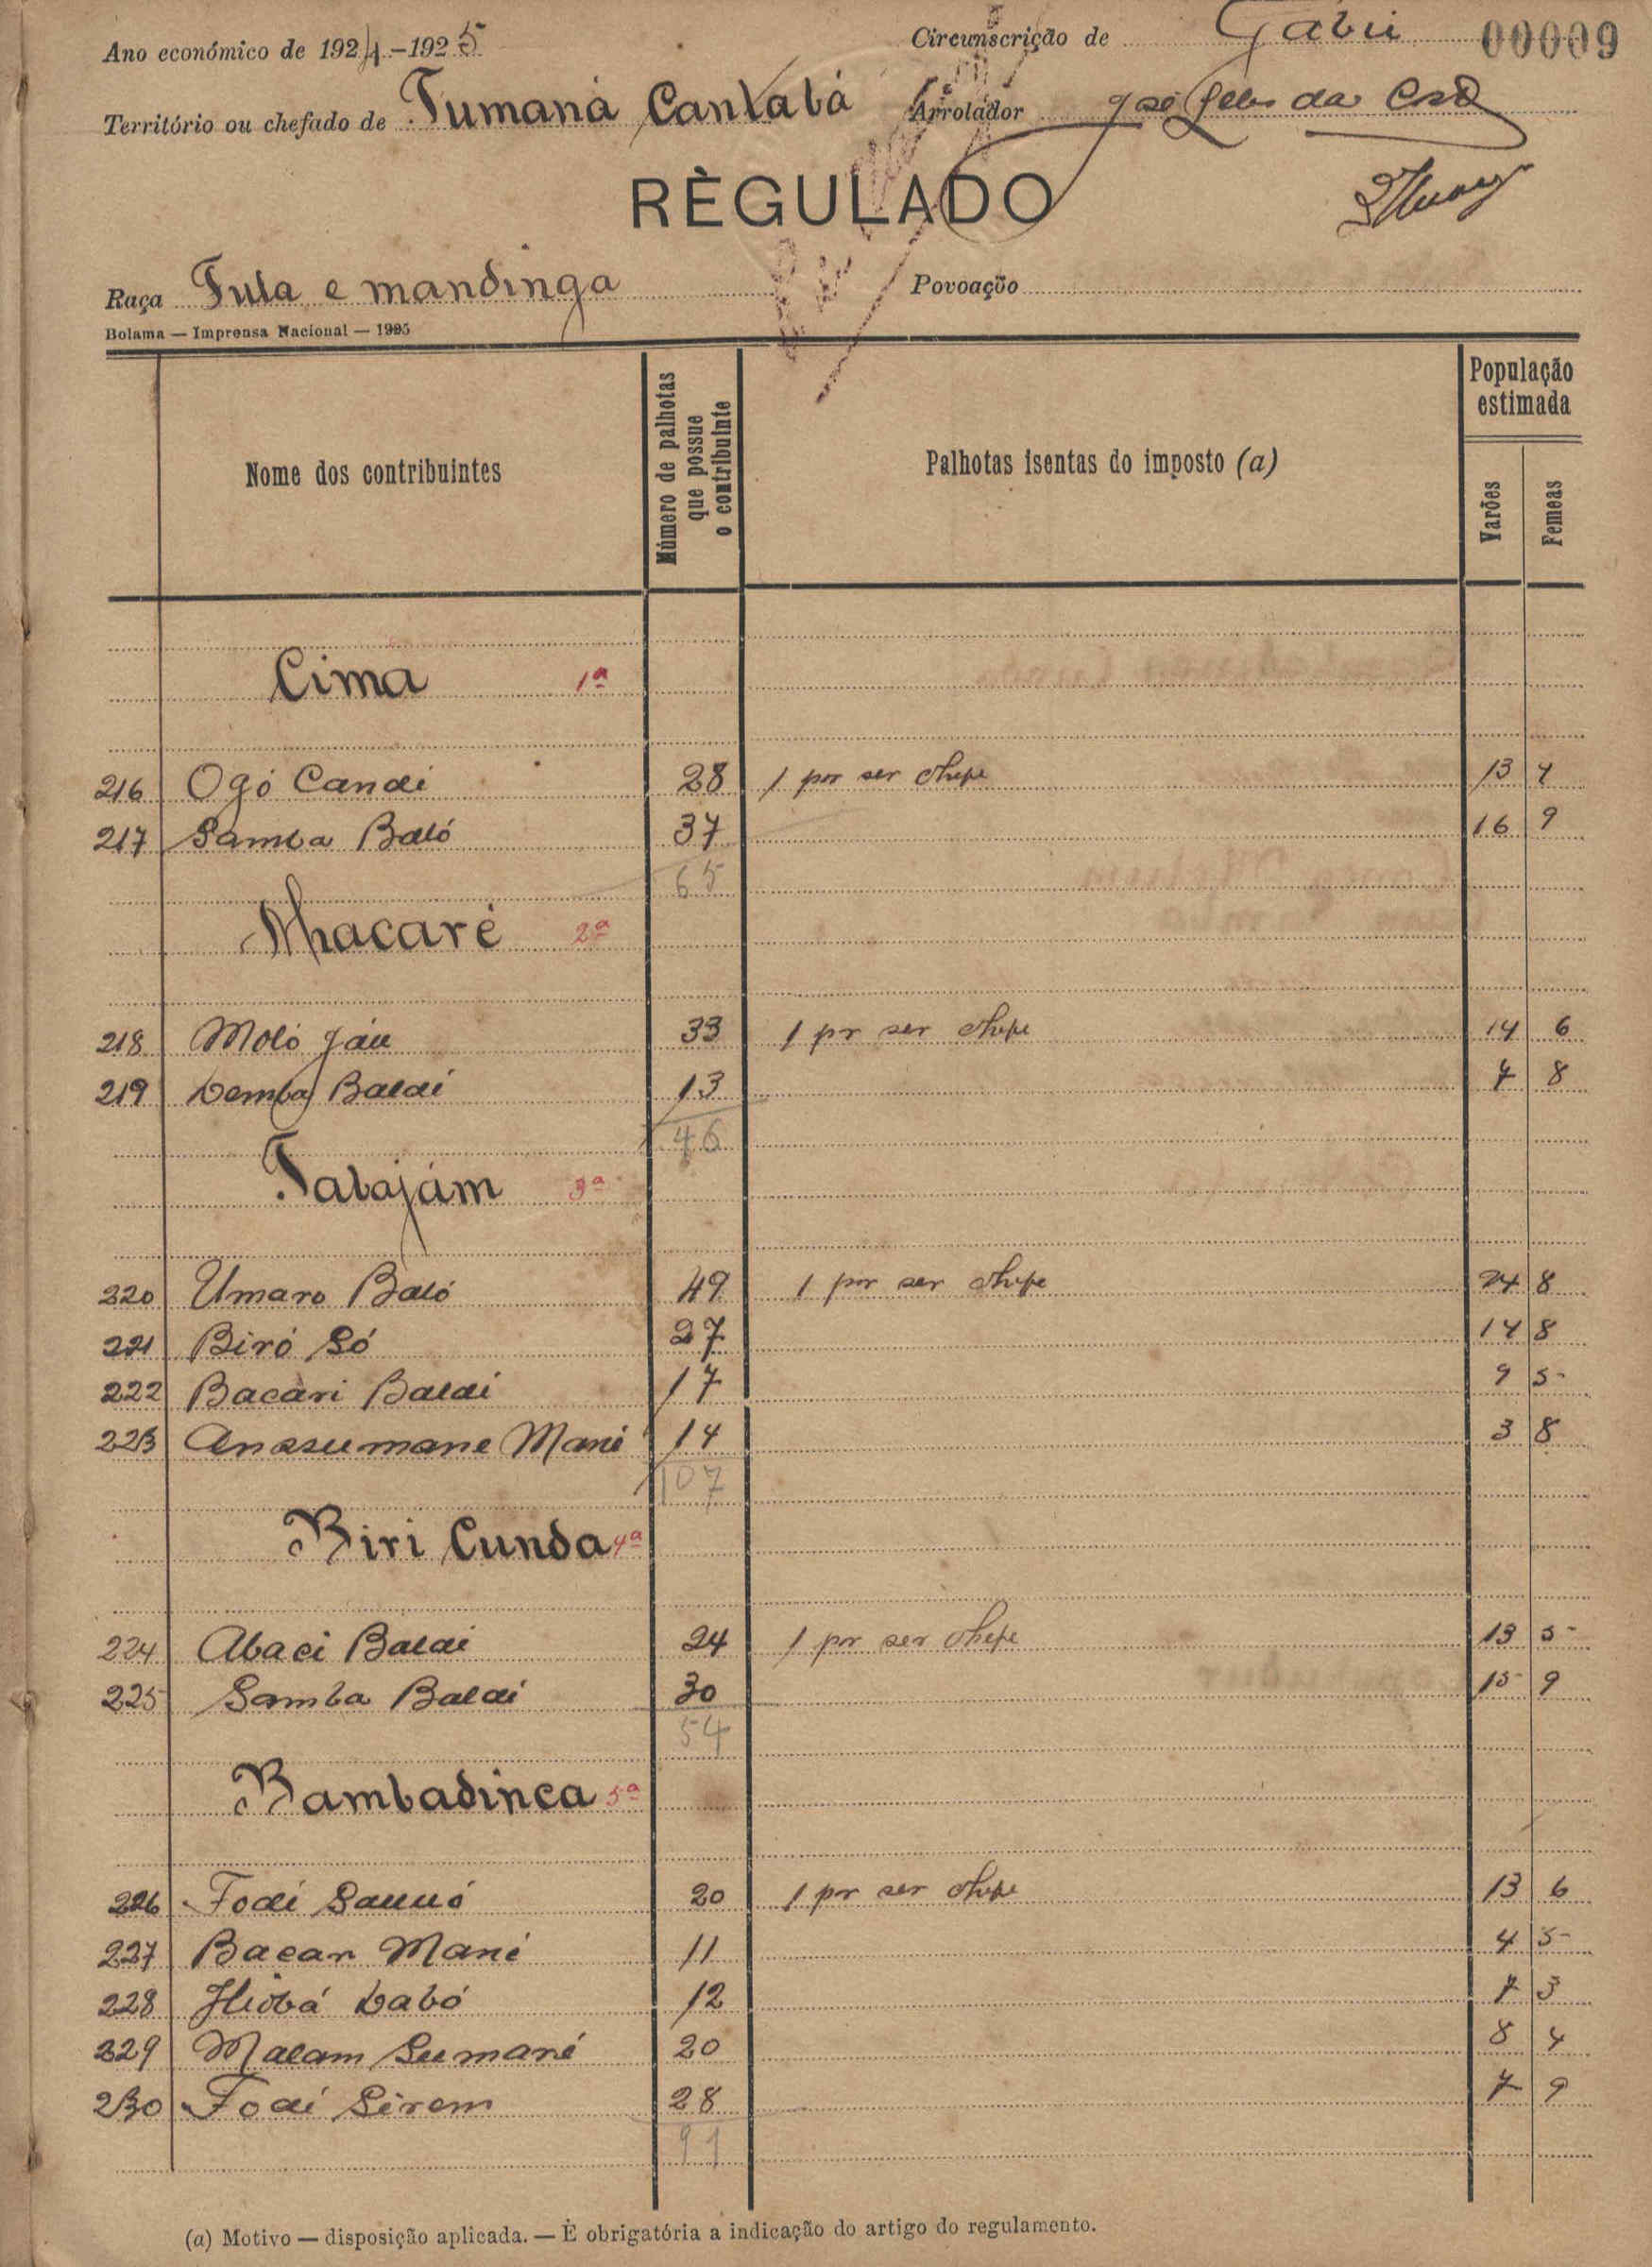 Ano económico de 1924-1925
Circunscrição de Gabú 00009
Território ou chefado de Tumaná Cantabá
Arrolador José da
RÈGULADO
Raça Fula e mandinga
Povoação
Bolama — Imprensa Nacional — 1925
Nome dos contribuintes
Número de palhotas que possue o contribuinte
Palhotas isentas do imposto (a)
População estimada
Varões
Femeas
Cima 1ª
216 Ogó Candé 28 1 por ser chefe 13 4
217 Samba Baló 37 16 9
65
Nhacaré 2ª
218 Moló Jáu 33 1 pr ser chefe 14 6
219 Demba Baldé 13 7 8
46
Tabajám 3ª
220 Umaro Baló 49 1 por ser chefe 24 8
221 Biró Só 27 14 8
222 Bacari Baldé 17 9 5
223 Anssumane Mané 14 3 8
107
Biri Cunda 4ª
224 Abaci Baldé 24 1 por ser chefe 13 5
225 Samba Baldé 30 15 9
54
Bambadinca 5ª
226 Fodé 20 1 por ser chefe 13 6
227 Bacar Mané 11 4 5
228 Dabó 12 7 3
229 Malam Sumané 20 8 4
230 Fodé Sirem 28 7 9
91
(a) Motivo — disposição aplicada. — É obrigatória a indicação do artigo do regulamento.